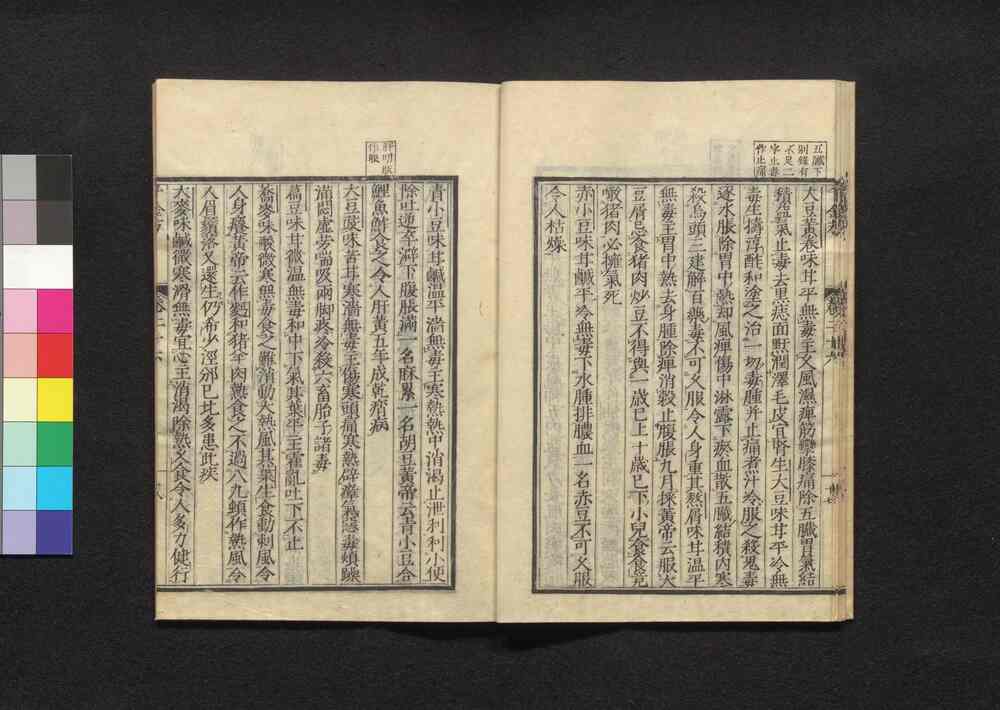 五臟下
別錄有
不足二
字止毒
作止痛
大豆黃卷味甘平無毒主久風濕痺筋攣膝痛除五臟胃氣結
積益氣止毒去黑痣面䵟潤澤毛皮宜腎生大豆味甘平冷無
毒生擣淳酢和塗之治一切毒腫并止痛煑汁冷服之殺鬼毒
逐水脹除胃中熱却風痺傷中淋露下瘀血散五臟結積內寒
殺烏頭三建解百藥毒不可久服令人身重其熬屑味甘溫平
無毒主胃中熱去身腫除痺消穀止腹脹九月採黃帝云服大
豆屑忌食猪肉炒豆不得與一歲已上十歲已下小兒食食竟
噉猪肉必擁氣死
赤小豆味甘鹹平冷無毒下水腫排膿血一名赤豆不可久服
令人枯燥
肝明版
作服
青小豆味甘鹹溫平濇無毒主寒熱熱中消渴止泄利利小便
除吐逆卒澼下腹脹滿一名麻累一名胡豆黃帝云青小豆合
鯉魚鮓食之令人肝黃五年成乾痟病
大豆豉味苦甘寒濇無毒主傷寒頭痛寒熱辟瘴氣惡毒煩躁
滿悶虛勞喘吸兩脚疼冷殺六畜胎子諸毒
藊豆味甘微溫無毒和中下氣其葉平主霍亂吐下不止
蕎麥味酸微寒無毒食之難消動大熱風其葉生食動刺風令
人身癢黃帝云作麪和猪羊肉熱食之不過八九頓作熱風令
人眉鬚落又還生仍希少涇邠已北多患此疾
大麥味鹹微寒滑無毒宜心主消渴除熱久食令人多力健行